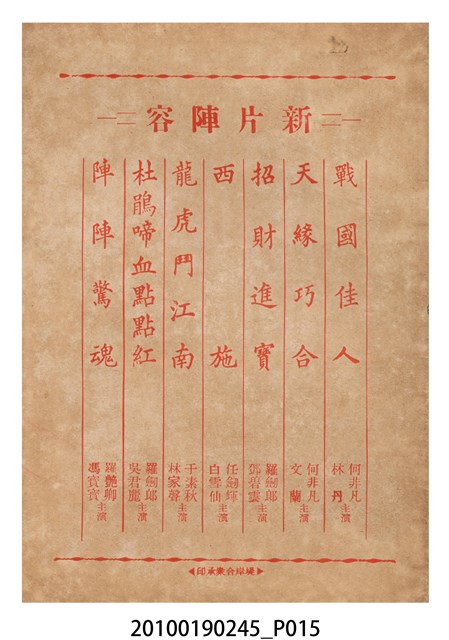 新片陣容
戰國佳人
何非凡
林丹
主演
天緣巧合
何非凡
文蘭
主演
招財進寶
羅劍郎
鄧碧雲
主演
西施
任劍輝
白雪仙
主演
龍虎鬥江南
于素秋
林家聲
主演
杜鵑啼血點點紅
羅劍郎
吳君麗
主演
陣陣驚魂
羅艷卿
馮寶寶
主演
堤岸合衆承印
20100190245_P015